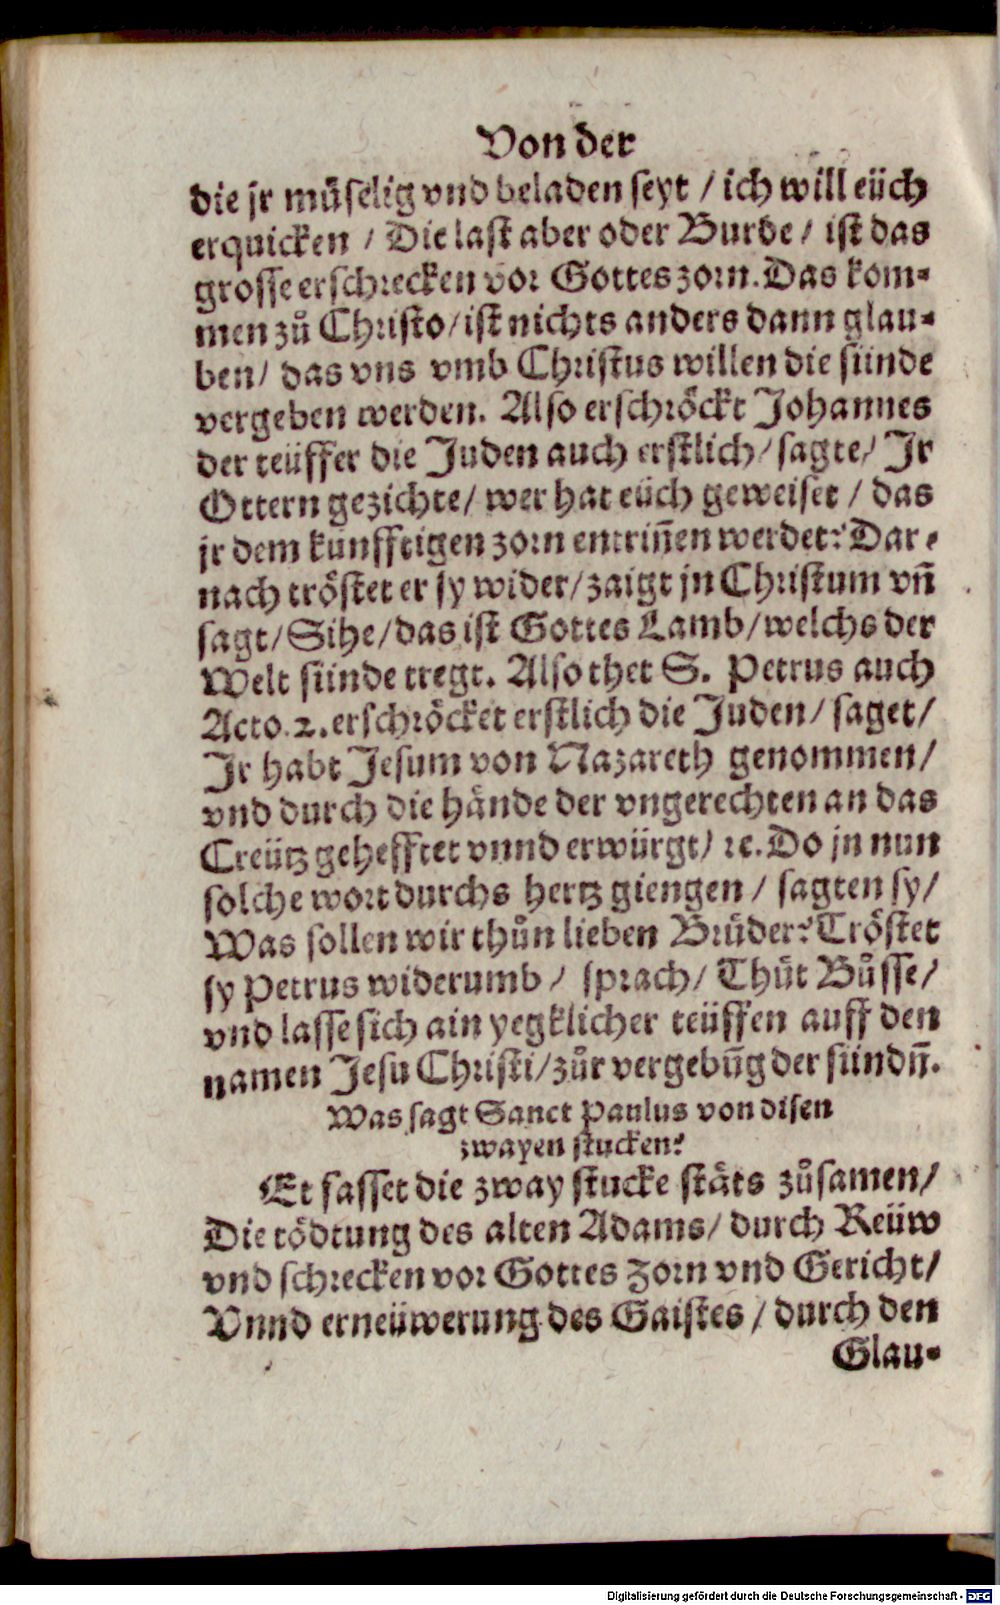 Von der
die jr müselig vnd beladen seyt / ich will eüch
erquicken / Die last aber oder Burde / ist das
grosse erschrecken vor Gottes zorn. Das kom⸗
men zů Christo / ist nichts anders dann glau⸗
ben / das vns vmb Christus willen die sünde
vergeben werden. Also erschröckt Johannes
der teüffer die Juden auch erstlich / sagte / Jr
Ottern gezichte / wer hat eüch geweiset / das
jr dem künfftigen zorn entrin̄en werdet? Dar⸗
nach tröstet er sy wider / zaigt jn Christum vn̄
sagt / Sihe / das ist Gottes Lamb / welchs der
Welt sünde tregt. Also thet S. Petrus auch
Acto. 2. erschröcket erstlich die Juden / saget /
Jr habt Jesum von Nazareth genommen /
vnd durch die hände der vngerechten an das
Creütz gehefftet vnnd erwürgt / ꝛc. Do jn nun
solche wort durchs hertz giengen / sagten sy /
Was sollen wir thůn lieben Brüder? Tröstet
sy Petrus widerumb / sprach / Thüt Bůsse /
vnd lasse sich ain yegklicher teüffen auff den
namen Jesu Christi / zůr vergebūg der sündn̄.
Was sagt Sanct Paulus von disen
zwayen stucken?
Et fasset die zway stucke stäts zůsamen /
Die tödtung des alten Adams / durch Reüw
vnd schrecken vor Gottes Zorn vnd Gericht /
Vnnd erneüwerung des Gaistes / durch den
Glau⸗
Digitalisierung gefördert durch die Deutsche Forschungsgemeinschaft - DFG